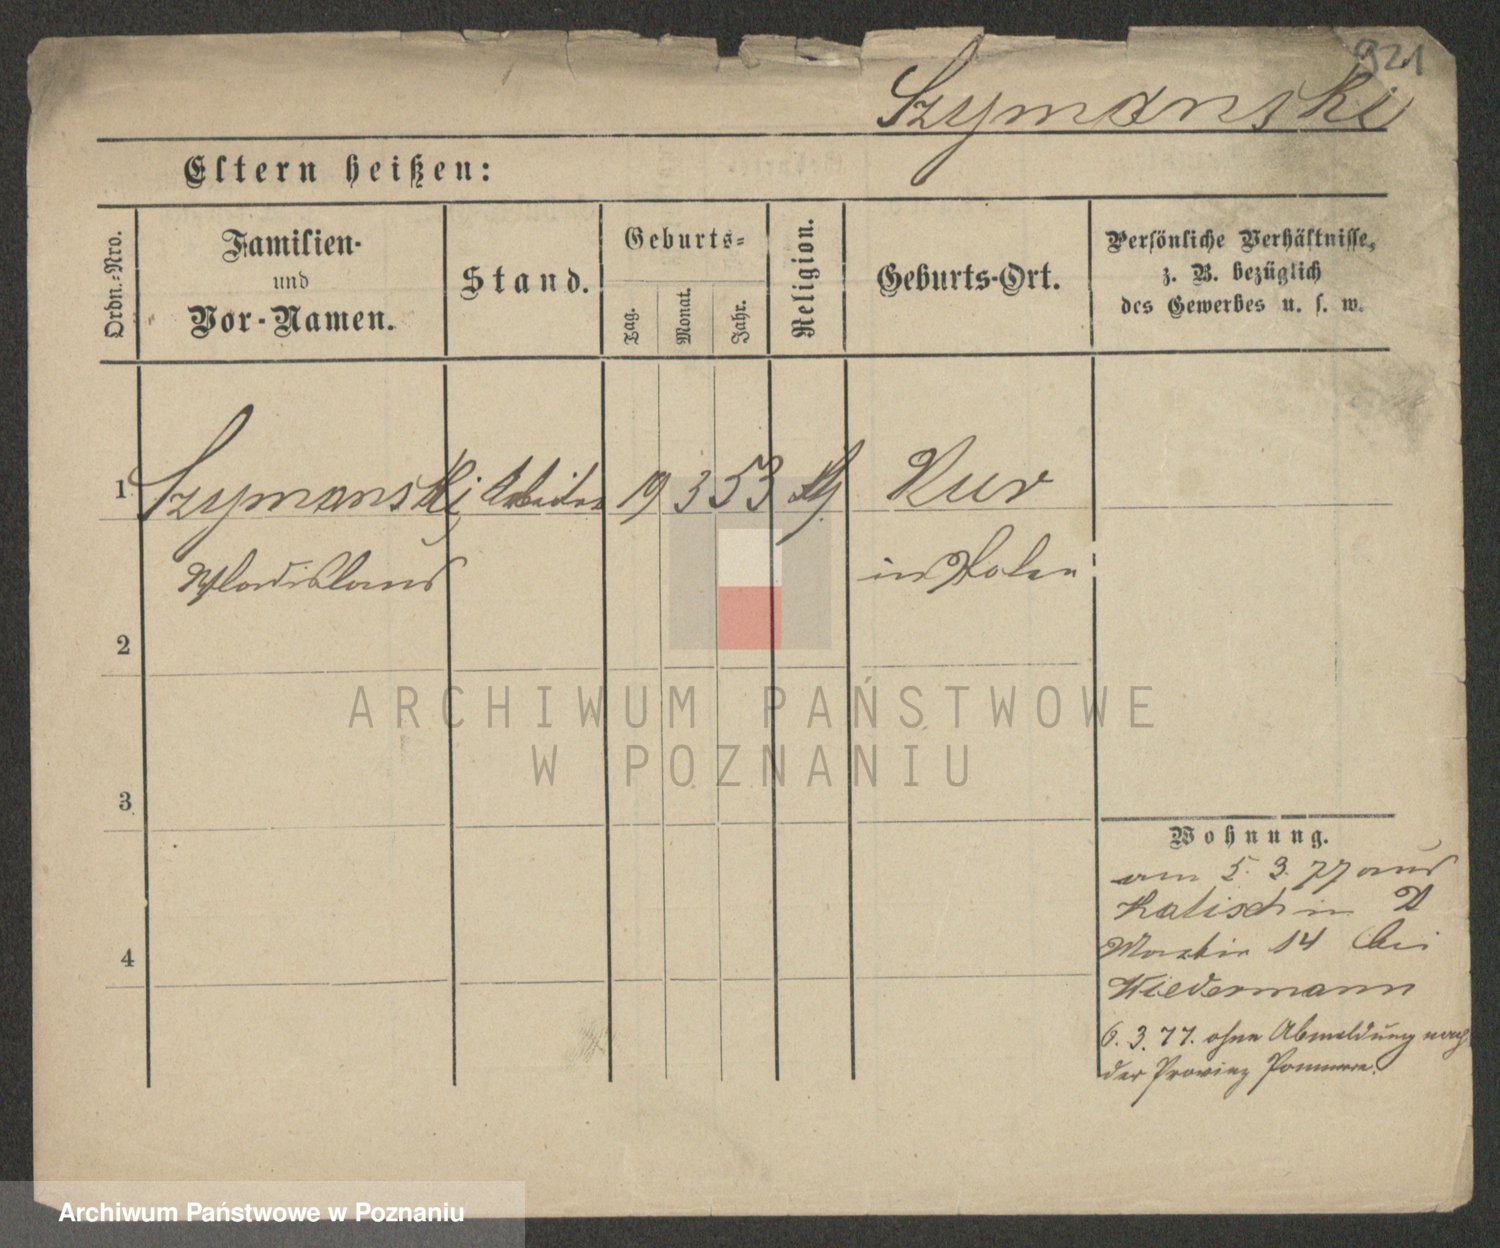 921
Szymanski
Eltern heißen:
Ordn.-Nro.
Familien-
und
Vor-Namen.
Stand.
Geburts-
Tag.
Monat.
Jahr.
Religion.
Geburts-Ort.
Persönliche Verhältnisse,
z. B. bezüglich
des Gewerbes u. s. w.
1 Szymanski, Arbeiter 19 3 53 Kur
Wladislaus in Polen
2
3
4
Wohnung.
am 5. 3. 77 aus
Kalisch in P
14 bei
Wiedermann
6. 3. 77. ohne Abmeldung nach
der Provinz Pommern.
ARCHIWUM PAŃSTWOWE
W POZNANIU
Archiwum Państwowe w Poznaniu